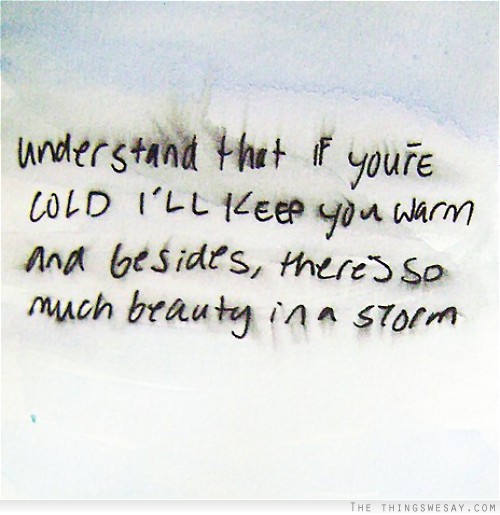 understand that if you're
COLD I'LL KEEP you warm
and besides, there's so
much beauty in a storm
THE THINGSWESAY.COM